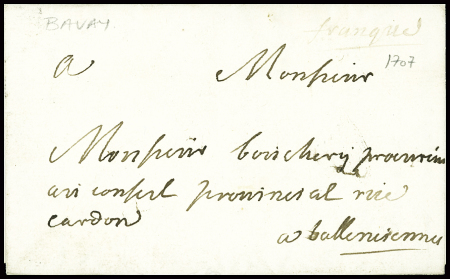 BAVAY
franquée
a Monsieur
1707
Monsieur boucherij procureur
au conseil provincial rue
cardon
a vallenciennes